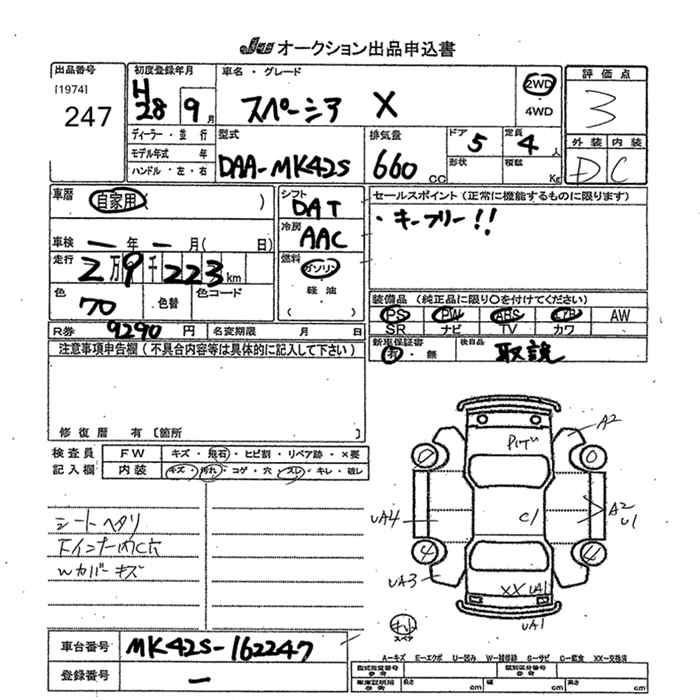 JU オークション出品申込書
出品番号
[1974]
247
初度登録年月
H
28 9月
車名・グレード
スペーシア X
2WD
4WD
評価点
3
外装 内装
D C
ディーラー・並行
モデル年式 年
ハンドル・左・右
型式
DAA-MK42S
排気量
660 CC
ドア 5
形状
定員 4 人
積載 Kg
車歴 自家用 ( )
車検 ー年ー月( 日)
走行
2万9千223km
色 70
色替
色コード
R券 9290 円
名変期限 月 日
シフト
DAT
冷房
AAC
燃料
ガソリン
軽油
( )
セールスポイント(正常に機能するものに限ります)
・キーフリー!!
装備品(純正品に限り○を付けてください)
PS PW ABS エアB AW
SR ナビ TV カワ
新車保証書
有・無
後日品
取説
注意事項申告欄(不具合内容等は具体的に記入して下さい)
修復歴 有 [箇所 ]
検査員
記入欄
FW キズ・飛石・ヒビ割・リペア跡・×要
内装 キズ・汚れ・コゲ・穴・スレ・キレ・破レ
シートヘタリ
ドインナー内C穴
Wカバーキズ
車台番号 MK42S-162247
登録番号 ー
A2
0
0
UA4
C1
A2
U1
4
4
UA3
XX UA1
UA1
スペア
A…キズ E…エクボ U…凹み W…補修線 S…サビ C…腐食 XX…交換済
型式指定番号
参考
類別区分番号
車庫証明用
参考
長さ cm
幅 cm
高さ cm